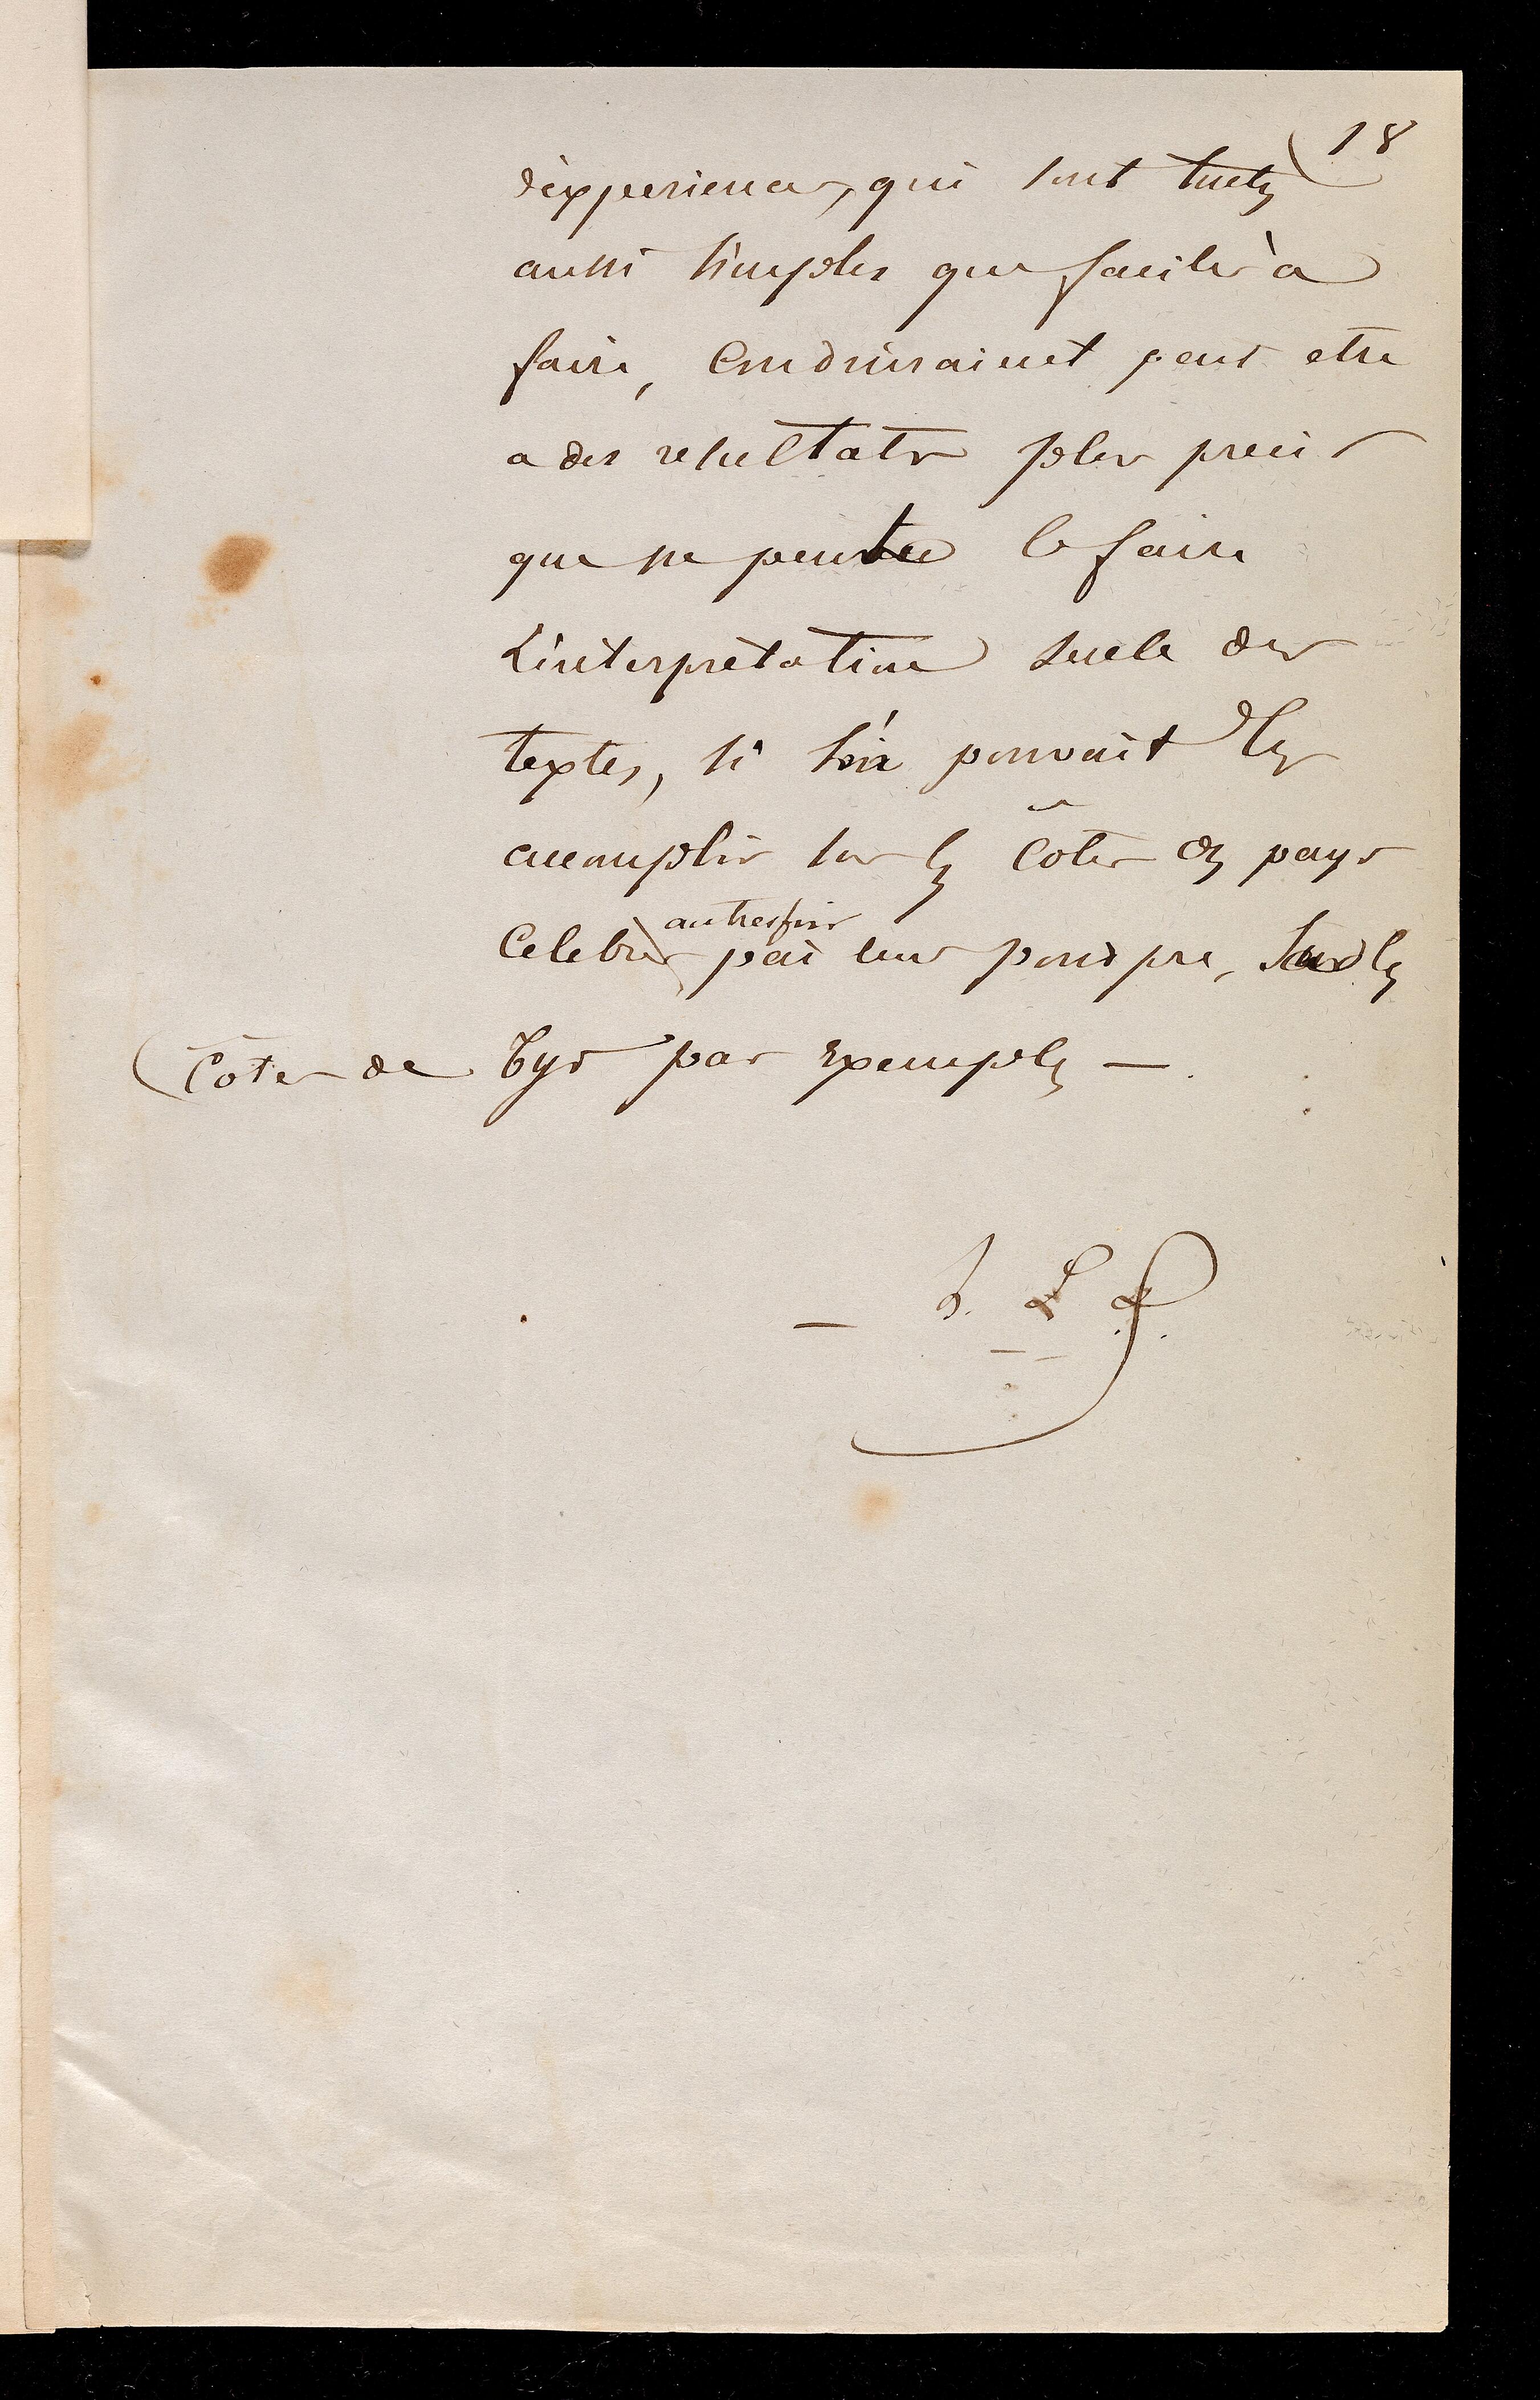 18
d'experiences, qui sont toutes
aussi simples que faciles à
faire, conduiraient peut etre
a des resultats plus precis
que ne peut le faire
L'interprétation seule des
textes, si l'on pouvait les
accomplir sur les Côtes des pays
Celebres autrefois par leur pourpre, Sur les
Côtes de Tyr par Exemple —.
— h. L D.